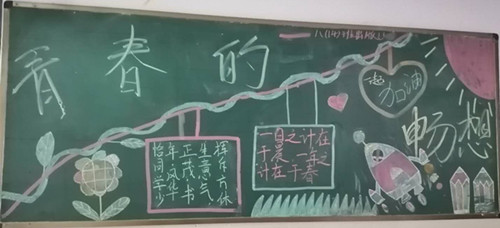 八(14)班
青春的
畅想
加油
恰同学少
年风华
正茂书
生意气
挥斥方
一日之计在
于晨，一年之
计在于春